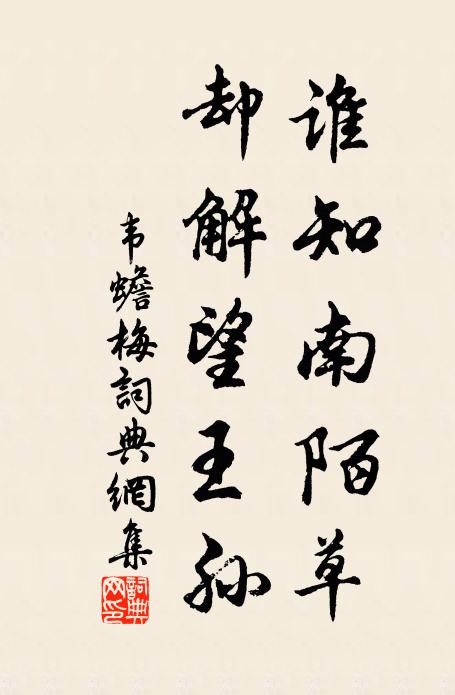 誰知南陌草
却解望王孫
韦蟾梅詞典網集
詞典网印